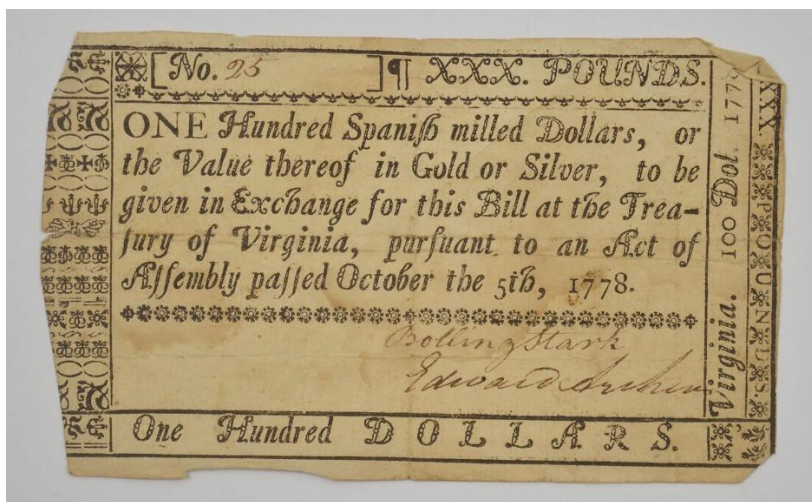 [No. 25 ]¶ XXX. POUNDS.
ONE Hundred Spaniſh milled Dollars, or
the Value thereof in Gold or Silver, to be
given in Exchange for this Bill at the Trea-
ſury of Virginia, purſuant to an Act of
Aſſembly paſſed October the 5th, 1778.
Bolling Stark
Edward Archer
One Hundred DOLLARS.
Virginia. 100 Dol. 1778
XXX POUNDS.